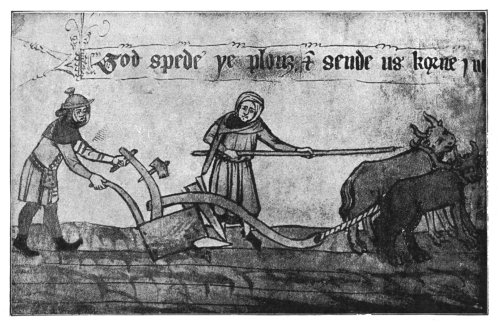 God spede ye plouȝ & sende us korne